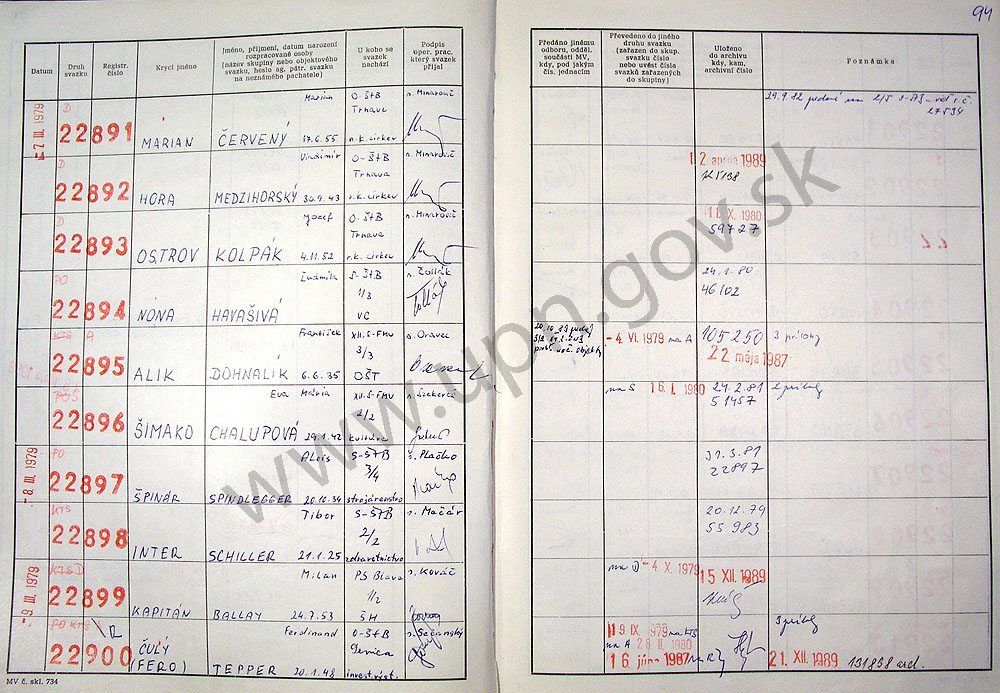 94
Datum
Druh svazku
Registr. číslo
Krycí jméno
Jméno, příjmení, datum narození
rozpracované osoby
(název skupiny nebo objektového
svazku, heslo ag. pátr. svazku
na neznámého pachatele)
U koho se
svazek
nachází
Podpis
oper. prac.
který svazek
přijal
Předáno jinému
odboru, odděl.
součásti MV,
kdy, pod jakým
čís. jednacím
Převedeno do jiného
druhu svazku
(zařazen do skup.
svazku číslo
nebo uvést čísla
svazků zařazených
do skupiny)
Uloženo
do archivu
kdy, kam,
archivní číslo
Poznámka
-7. III. 1979
D
22891
MARIAN
ČERVENÝ
Marian
17.6.55
O-ŠtB
Trnava
r.k. cirkev
n. Minarovič
29.9.82
27534
D
22892
HORA
MEDZIHORSKÝ
Vladimír
30.9.43
O-ŠtB
Trnava
r.k. cirkev
n. Minarovič
12. apríla 1989
D
22893
OSTROV
KOLPÁK
Jozef
4.11.52
O-ŠtB
Trnava
r.k. cirkev
n. Minarovič
X. 1980
59727
PO
22894
NÓNA
HAVAŠIVÁ
Ľudmila
S-ŠtB
1/3
VC
24.1.80
46102
KTS A
22895
ALIK
DOHNALÍK
František
6.6.35
XII.S-FMV
3/3
OŠT
n. Oravec
-4. VI. 1979 na A
105250
22 mája 1987
3 prílohy
22896
ŠIMAKO
CHALUPOVÁ
Eva Mária
29.1.42
XII.S-FMV
2/2
kultura
n. Szekeres
na S
16. I. 1980
24.2.81
51457
2 prílohy
-8. III. 1979
PO
22897
ŠPINÁR
SPINDLEGGER
Alois
20.10.34
S-ŠTB
3/4
strojárenstvo
n. Plačko
31.3.81
22897
KTS
22898
INTER
SCHILLER
Tibor
21.1.25
S-ŠTB
2/2
zdravotníctvo
n. Mačár
20.12.79
55983
-9. III. 1979
KTS D
22899
KAPITÁN
BALLAY
Milan
24.7.53
PS Blava
1/2
ŠH
n. Kováč
na D
-4. X. 1979
15 XII. 1989
PO KTS
22900
ČUĽY
(FERO)
TEPPER
Ferdinand
20.1.48
O-ŠtB
Levica
invest.výst.
19 IX. 1979 na KTS
na A 28 II. 1980
16 júna 1987
21. XII. 1989
3 prílohy
131838 arch.
MV č. skl. 734
www.upn.gov.sk